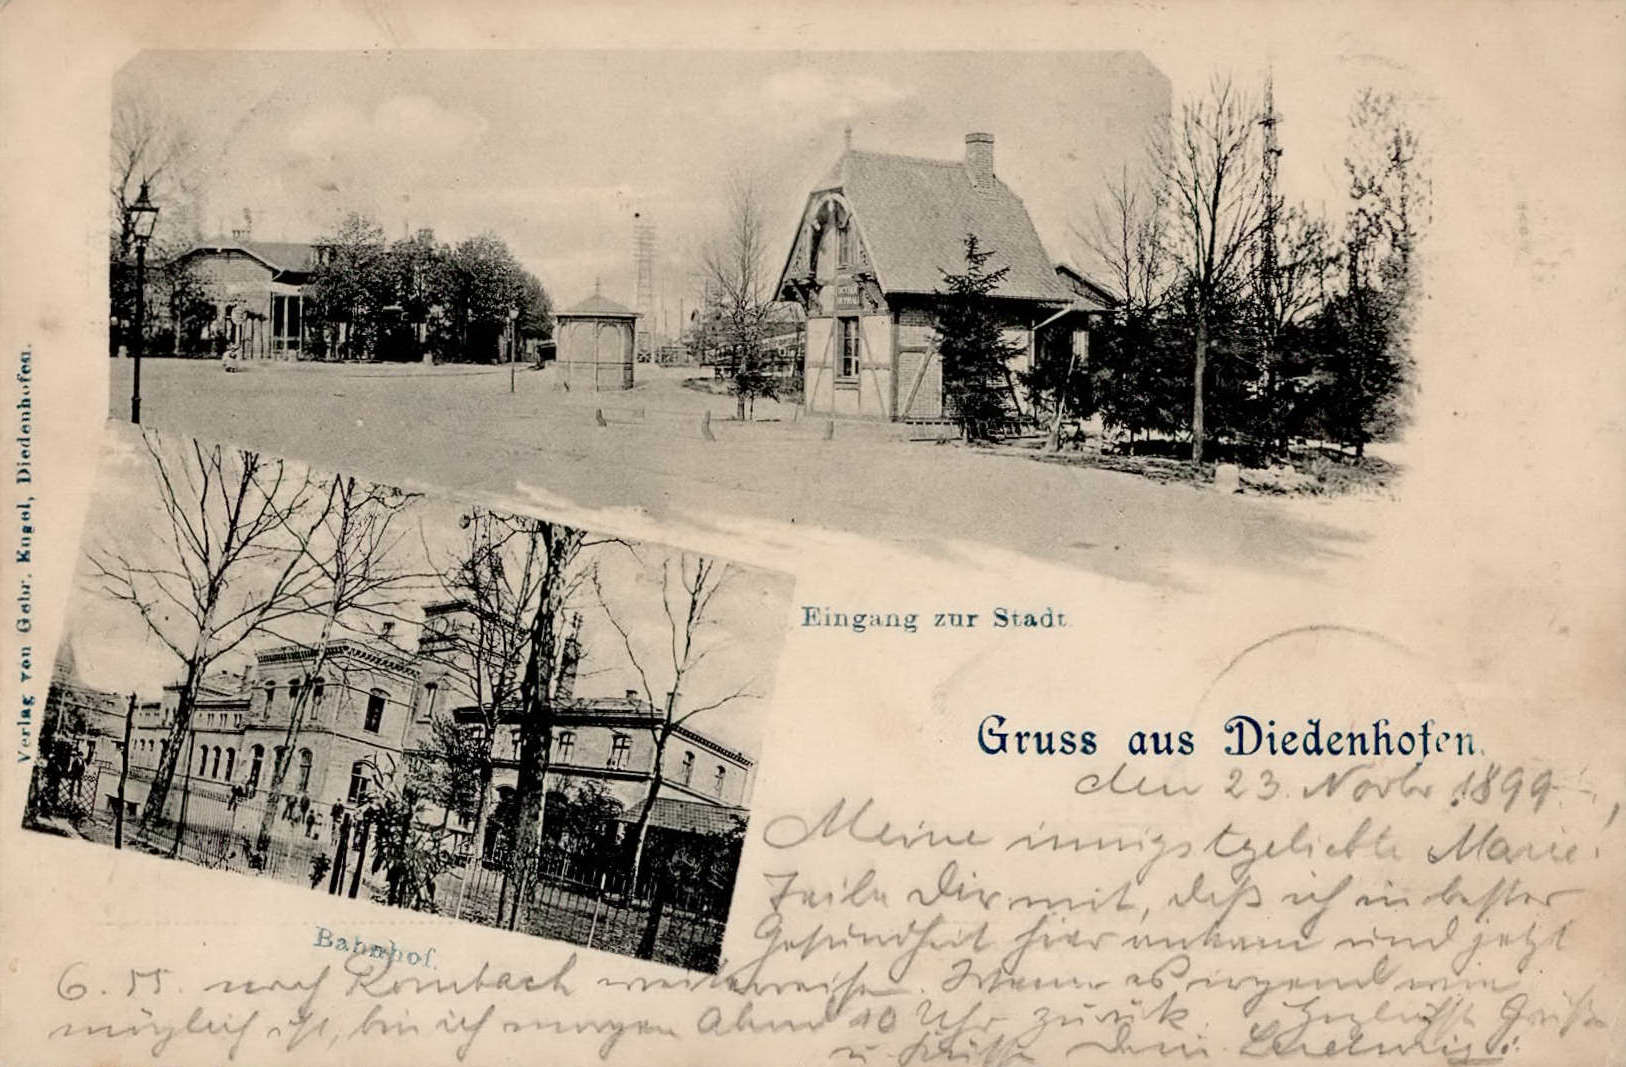 Verlag von Gebr. Kugel, Diedenhofen.
Eingang zur Stadt
Gruss aus Diedenhofen.
Bahnhof.
den 23. Novbr 1899.
Meine innigstgeliebte Marie!
Teile Dir mit, daß ich in bester
Gesundheit hier ankam und jetzt
6.55. nach Rombach weiterreise. Wenn es irgend wie
möglich ist, bin ich morgen Abend 10 Uhr zurück. Herzlichste Grüße
u. Küsse Dein Ludwig.